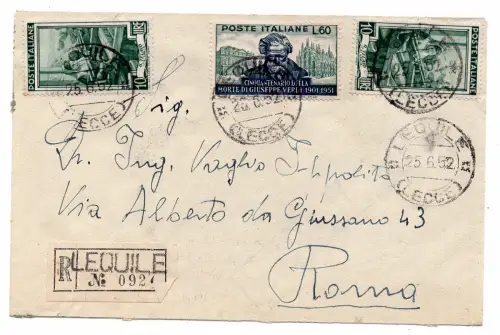 POSTE ITALIANE
10
POSTE ITALIANE L.60
CINQUANTENARIO DELLA
MORTE DI GIUSEPPE VERDI · 1901 · 1951
POSTE ITALIANE
10
25.6.52
(LECCE)
25.6.52
(LECCE)
(LECCE)
LEQUILE
25.6.52
(LECCE)
Sig.
Dr. Ing. Vaglio Ippolito
Via Alberto da Giussano 43
Roma
R LEQUILE
№ 0927